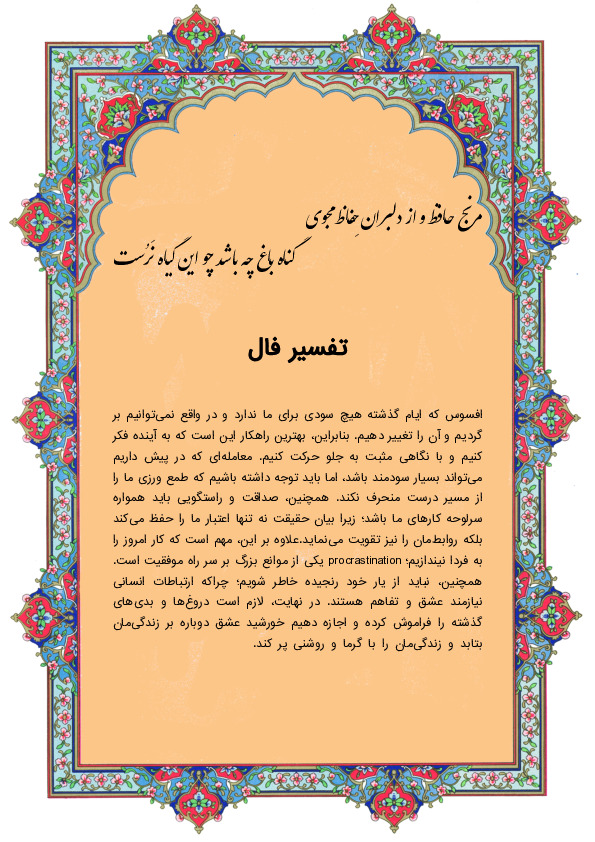 مرنج حافظ و از دلبران حِفاظ مجوی
گناه باغ چه باشد چو این گیاه نَرُست
تفسیر فال
افسوس که ایام گذشته هیچ سودی برای ما ندارد و در واقع نمی‌توانیم بر
گردیم و آن را تغییر دهیم. بنابراین، بهترین راهکار این است که به آینده فکر
کنیم و با نگاهی مثبت به جلو حرکت کنیم. معامله‌ای که در پیش داریم
می‌تواند بسیار سودمند باشد، اما باید توجه داشته باشیم که طمع ورزی ما را
از مسیر درست منحرف نکند. همچنین، صداقت و راستگویی باید همواره
سرلوحه کارهای ما باشد؛ زیرا بیان حقیقت نه تنها اعتبار ما را حفظ می‌کند
بلکه روابط‌مان را نیز تقویت می‌نماید.علاوه بر این، مهم است که کار امروز را
به فردا نیندازیم؛ procrastination یکی از موانع بزرگ بر سر راه موفقیت است.
همچنین، نباید از یار خود رنجیده خاطر شویم؛ چراکه ارتباطات انسانی
نیازمند عشق و تفاهم هستند. در نهایت، لازم است دروغ‌ها و بدی‌های
گذشته را فراموش کرده و اجازه دهیم خورشید عشق دوباره بر زندگی‌مان
بتابد و زندگی‌مان را با گرما و روشنی پر کند.